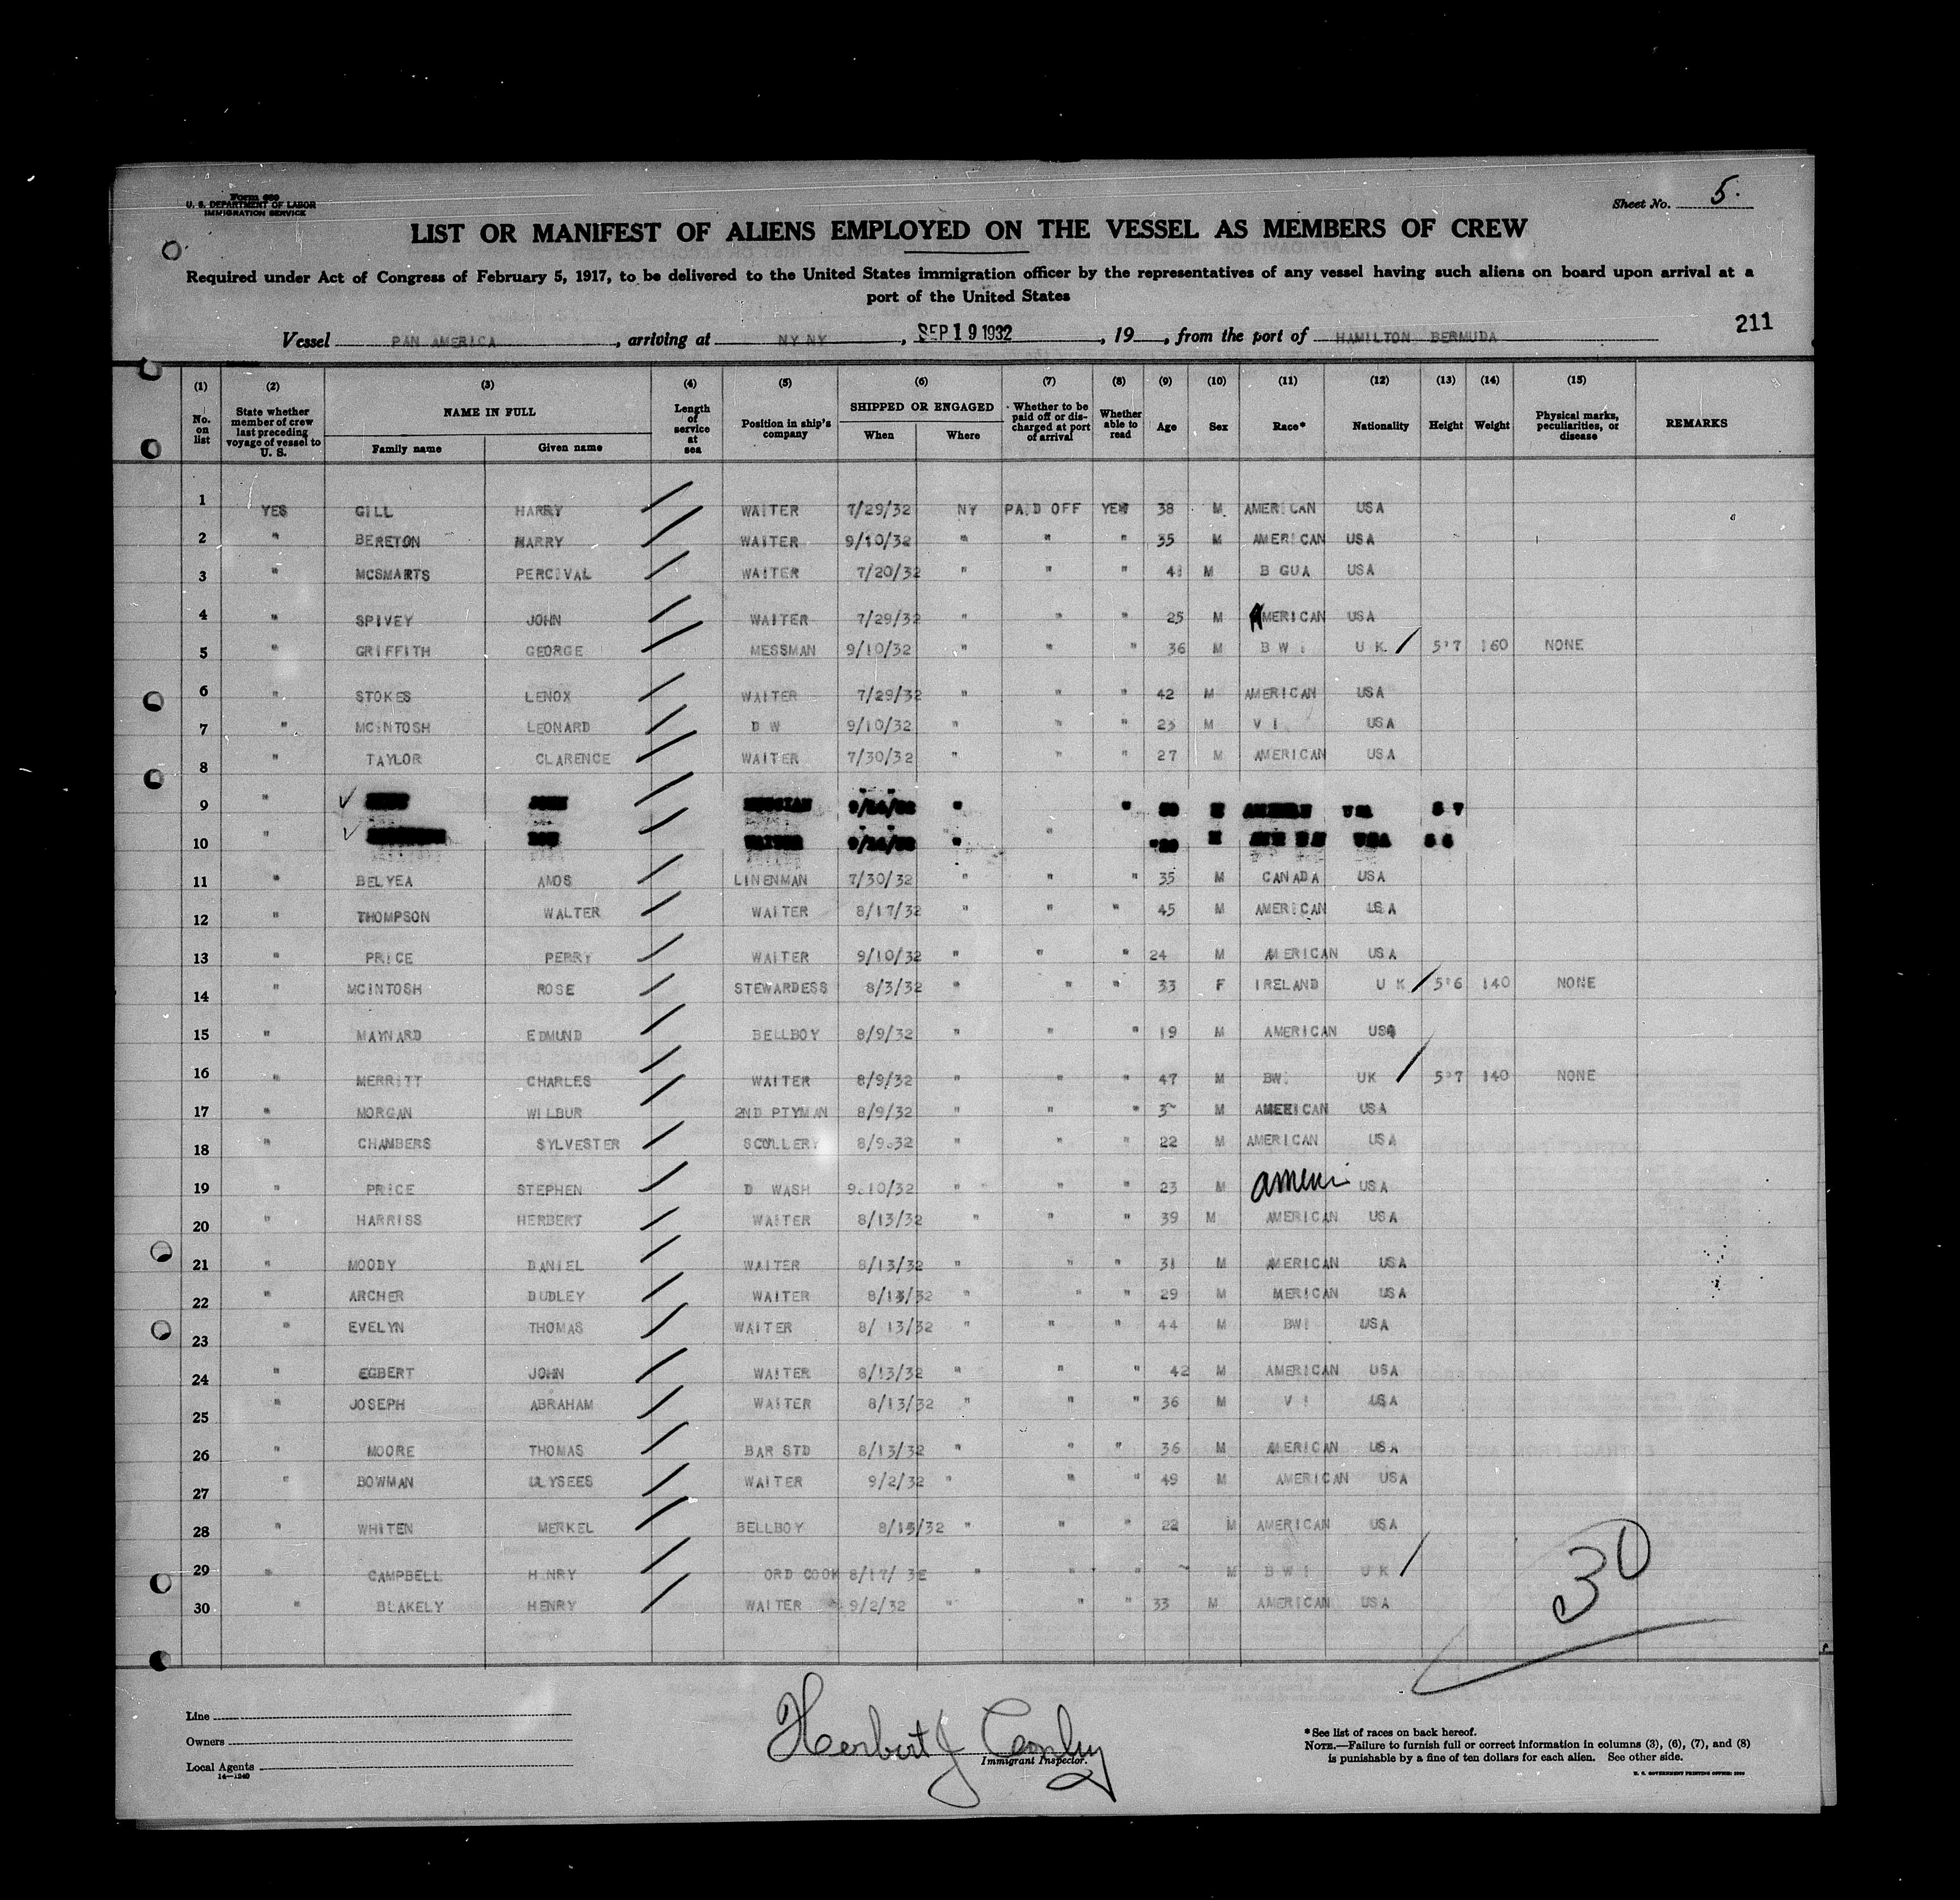 Form 680
U. S. DEPARTMENT OF LABOR
IMMIGRATION SERVICE
Sheet No. 5.
LIST OR MANIFEST OF ALIENS EMPLOYED ON THE VESSEL AS MEMBERS OF CREW
Required under Act of Congress of February 5, 1917, to be delivered to the United States immigration officer by the representatives of any vessel having such aliens on board upon arrival at a
port of the United States
Vessel PAN AMERICA, arriving at NY NY, SEP 19 1932, 19, from the port of HAMILTON BERMUDA
211
(1) (2) (3) (4) (5) (6) (7) (8) (9) (10) (11) (12) (13) (14) (15)
No. on list State whether member of crew last preceding voyage of vessel to U. S. NAME IN FULL Length of service at sea Position in ship's company SHIPPED OR ENGAGED Whether to be paid off or discharged at port of arrival Whether able to read Age Sex Race* Nationality Height Weight Physical marks, peculiarities, or disease REMARKS
Family name Given name When Where
1 YES GILL HARRY WAITER 7/29/32 NY PAID OFF YES 38 M AMERICAN USA
2 " BERETON HARRY WAITER 9/10/32 " " " 35 M AMERICAN USA
3 " MCSMARTS PERCIVAL WAITER 7/20/32 " " " 41 M B GUA USA
4 " SPIVEY JOHN WAITER 7/29/32 " " " 25 M AMERICAN USA
5 " GRIFFITH GEORGE MESSMAN 9/10/32 " " " 36 M B W I U K 5"7 160 NONE
6 " STOKES LENOX WAITER 7/29/32 " " " 42 M AMERICAN USA
7 " MCINTOSH LEONARD D W 9/10/32 " " " 23 M V I USA
8 " TAYLOR CLARENCE WAITER 7/30/32 " " " 27 M AMERICAN USA
9 " " "
10 " WAITER " " USA
11 " BELYEA AMOS LINENMAN 7/30/32 " " " 35 M CANADA USA
12 " THOMPSON WALTER WAITER 8/17/32 " " " 45 M AMERICAN USA
13 " PRICE PERRY WAITER 9/10/32 " " " 24 M AMERICAN USA
14 " MCINTOSH ROSE STEWARDESS 8/3/32 " " " 33 F IRELAND U K 5"6 140 NONE
15 " MAYNARD EDMUND BELLBOY 8/9/32 " " " 19 M AMERICAN USA
16 " MERRITT CHARLES WAITER 8/9/32 " " " 47 M BWI UK 5"7 140 NONE
17 " MORGAN WILBUR 2ND PTYMAN 8/9/32 " " " M AMERICAN USA
18 " CHAMBERS SYLVESTER SCULLERY 8/9.32 " " " 22 M AMERICAN USA
19 " PRICE STEPHEN D WASH 9.10/32 " " " 23 M Ameri USA
20 " HARRISS HERBERT WAITER 8/13/32 " " " 39 M AMERICAN USA
21 " MOODY DANIEL WAITER 8/13/32 " " " 31 M AMERICAN USA
22 " ARCHER DUDLEY WAITER 8/13/32 " " " 29 M MERICAN USA
23 " EVELYN THOMAS WAITER 8/ 13/32 " " " 44 M BWI USA
24 " EGBERT JOHN WAITER 8/13/32 " " " 42 M AMERICAN USA
25 " JOSEPH ABRAHAM WAITER 8/13/32 " " " 36 M V I USA
26 " MOORE THOMAS BAR STD 8/13/32 " " " 36 M AMERICAN USA
27 " BOWMAN ULYSEES WAITER 9/2/32 " " " 49 M AMERICAN USA
28 " WHITEN MERKEL BELLBOY 8/15/32 " " " 22 M AMERICAN USA
29 " CAMPBELL H NRY ORD COOK 8/17/ 32 " " " M B W I U K
30 " BLAKELY HENRY WAITER 9/2/32 " " " 33 M AMERICAN USA
30
Line
Owners
Local Agents
14—1240
Herbert J
Immigrant Inspector.
* See list of races on back hereof.
NOTE.—Failure to furnish full or correct information in columns (3), (6), (7), and (8)
is punishable by a fine of ten dollars for each alien. See other side.